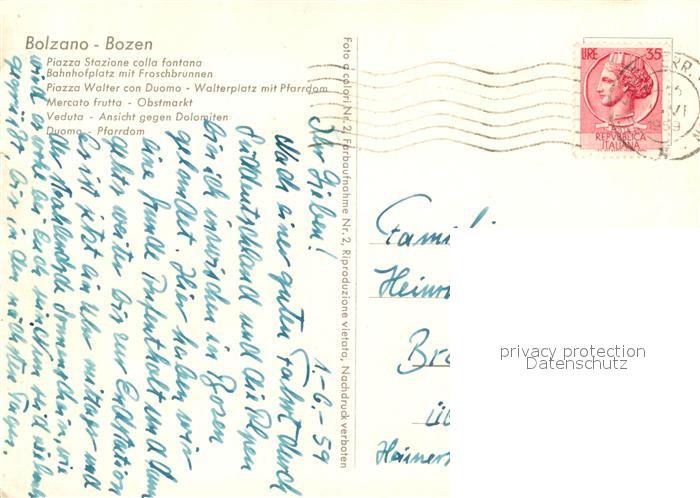 Bolzano - Bozen
Piazza Stazione colla fontana
Bahnhofplatz mit Froschbrunnen
Piazza Walter con Duomo - Walterplatz mit Pfarrdom
Mercato frutta - Obstmarkt
Veduta - Ansicht gegen Dolomiten
Duomo - Pfarrdom
Foto a colori Nr. 2, Farbaufnahme Nr. 2, Riproduzione vietata, Nachdruck verboten
LIRE 35
REPVBBLICA
ITALIANA
1959
1.-6.-59
Ihr Lieben!
Nach einer guten Fahrt durch
Süddeutschland und die Alpen
bin ich inzwischen in Bozen
gelandet. Hier haben wir
eine Stunde Aufenthalt und dann
gehts weiter bis zur Endstation
Es ist jetzt ein Uhr mittags und
strahlender Sonnenschein, wie
wird es wohl bei Euch sein
gegrüßt, bis in den nächsten Tagen.
Famili
Heinr
Br
üb
Heiners
privacy protection
Datenschutz